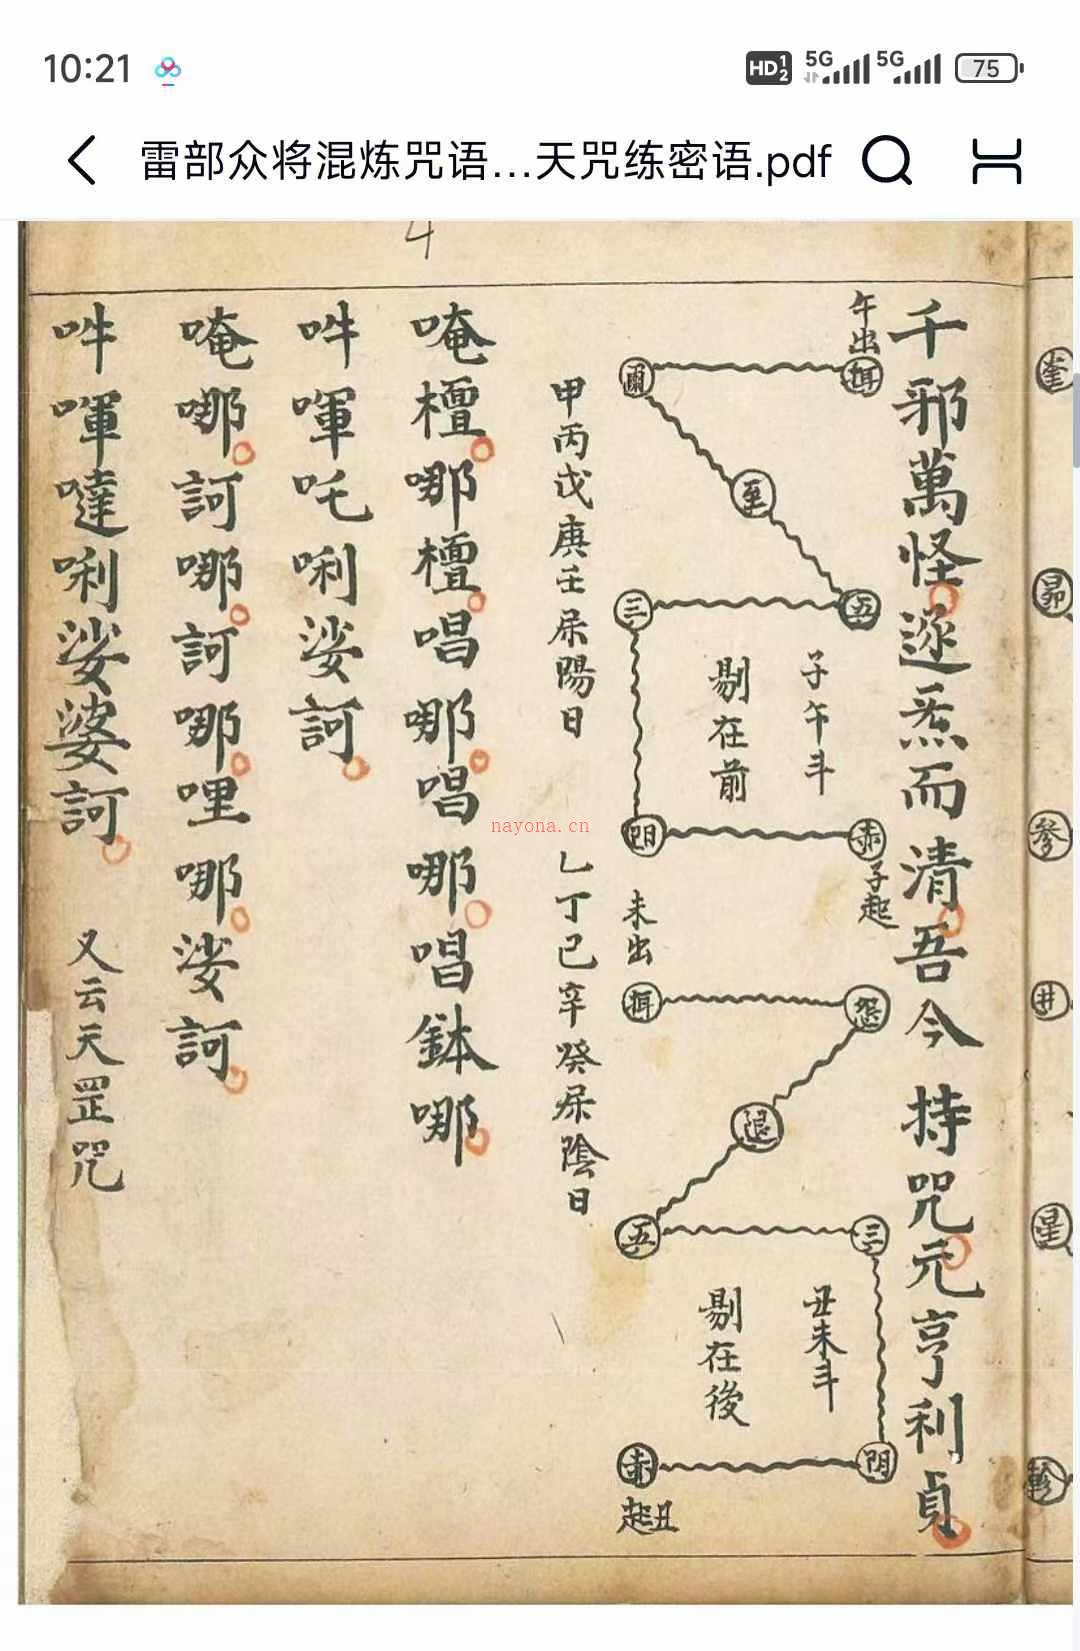 10:21
HD 1 2 5G 5G 75
雷部众将混炼咒语...天咒练密语.pdf
4
奎
昴
參
井
星
軫
千邪萬怪逐炁而清吾今持咒元亨利貞
午出
子午斗
剔在前
五
三
赤
子起
甲丙戊庚壬
陽日
未出
退
五
三
丑未斗
剔在後
赤
丑起
乙丁己辛癸
陰日
唵檀哪檀唱哪唱哪唱鉢哪
吽㖇吒唎娑訶
唵哪訶哪訶哪哩哪娑訶
吽㖇噠唎娑婆訶
又云天罡咒
nayona.cn